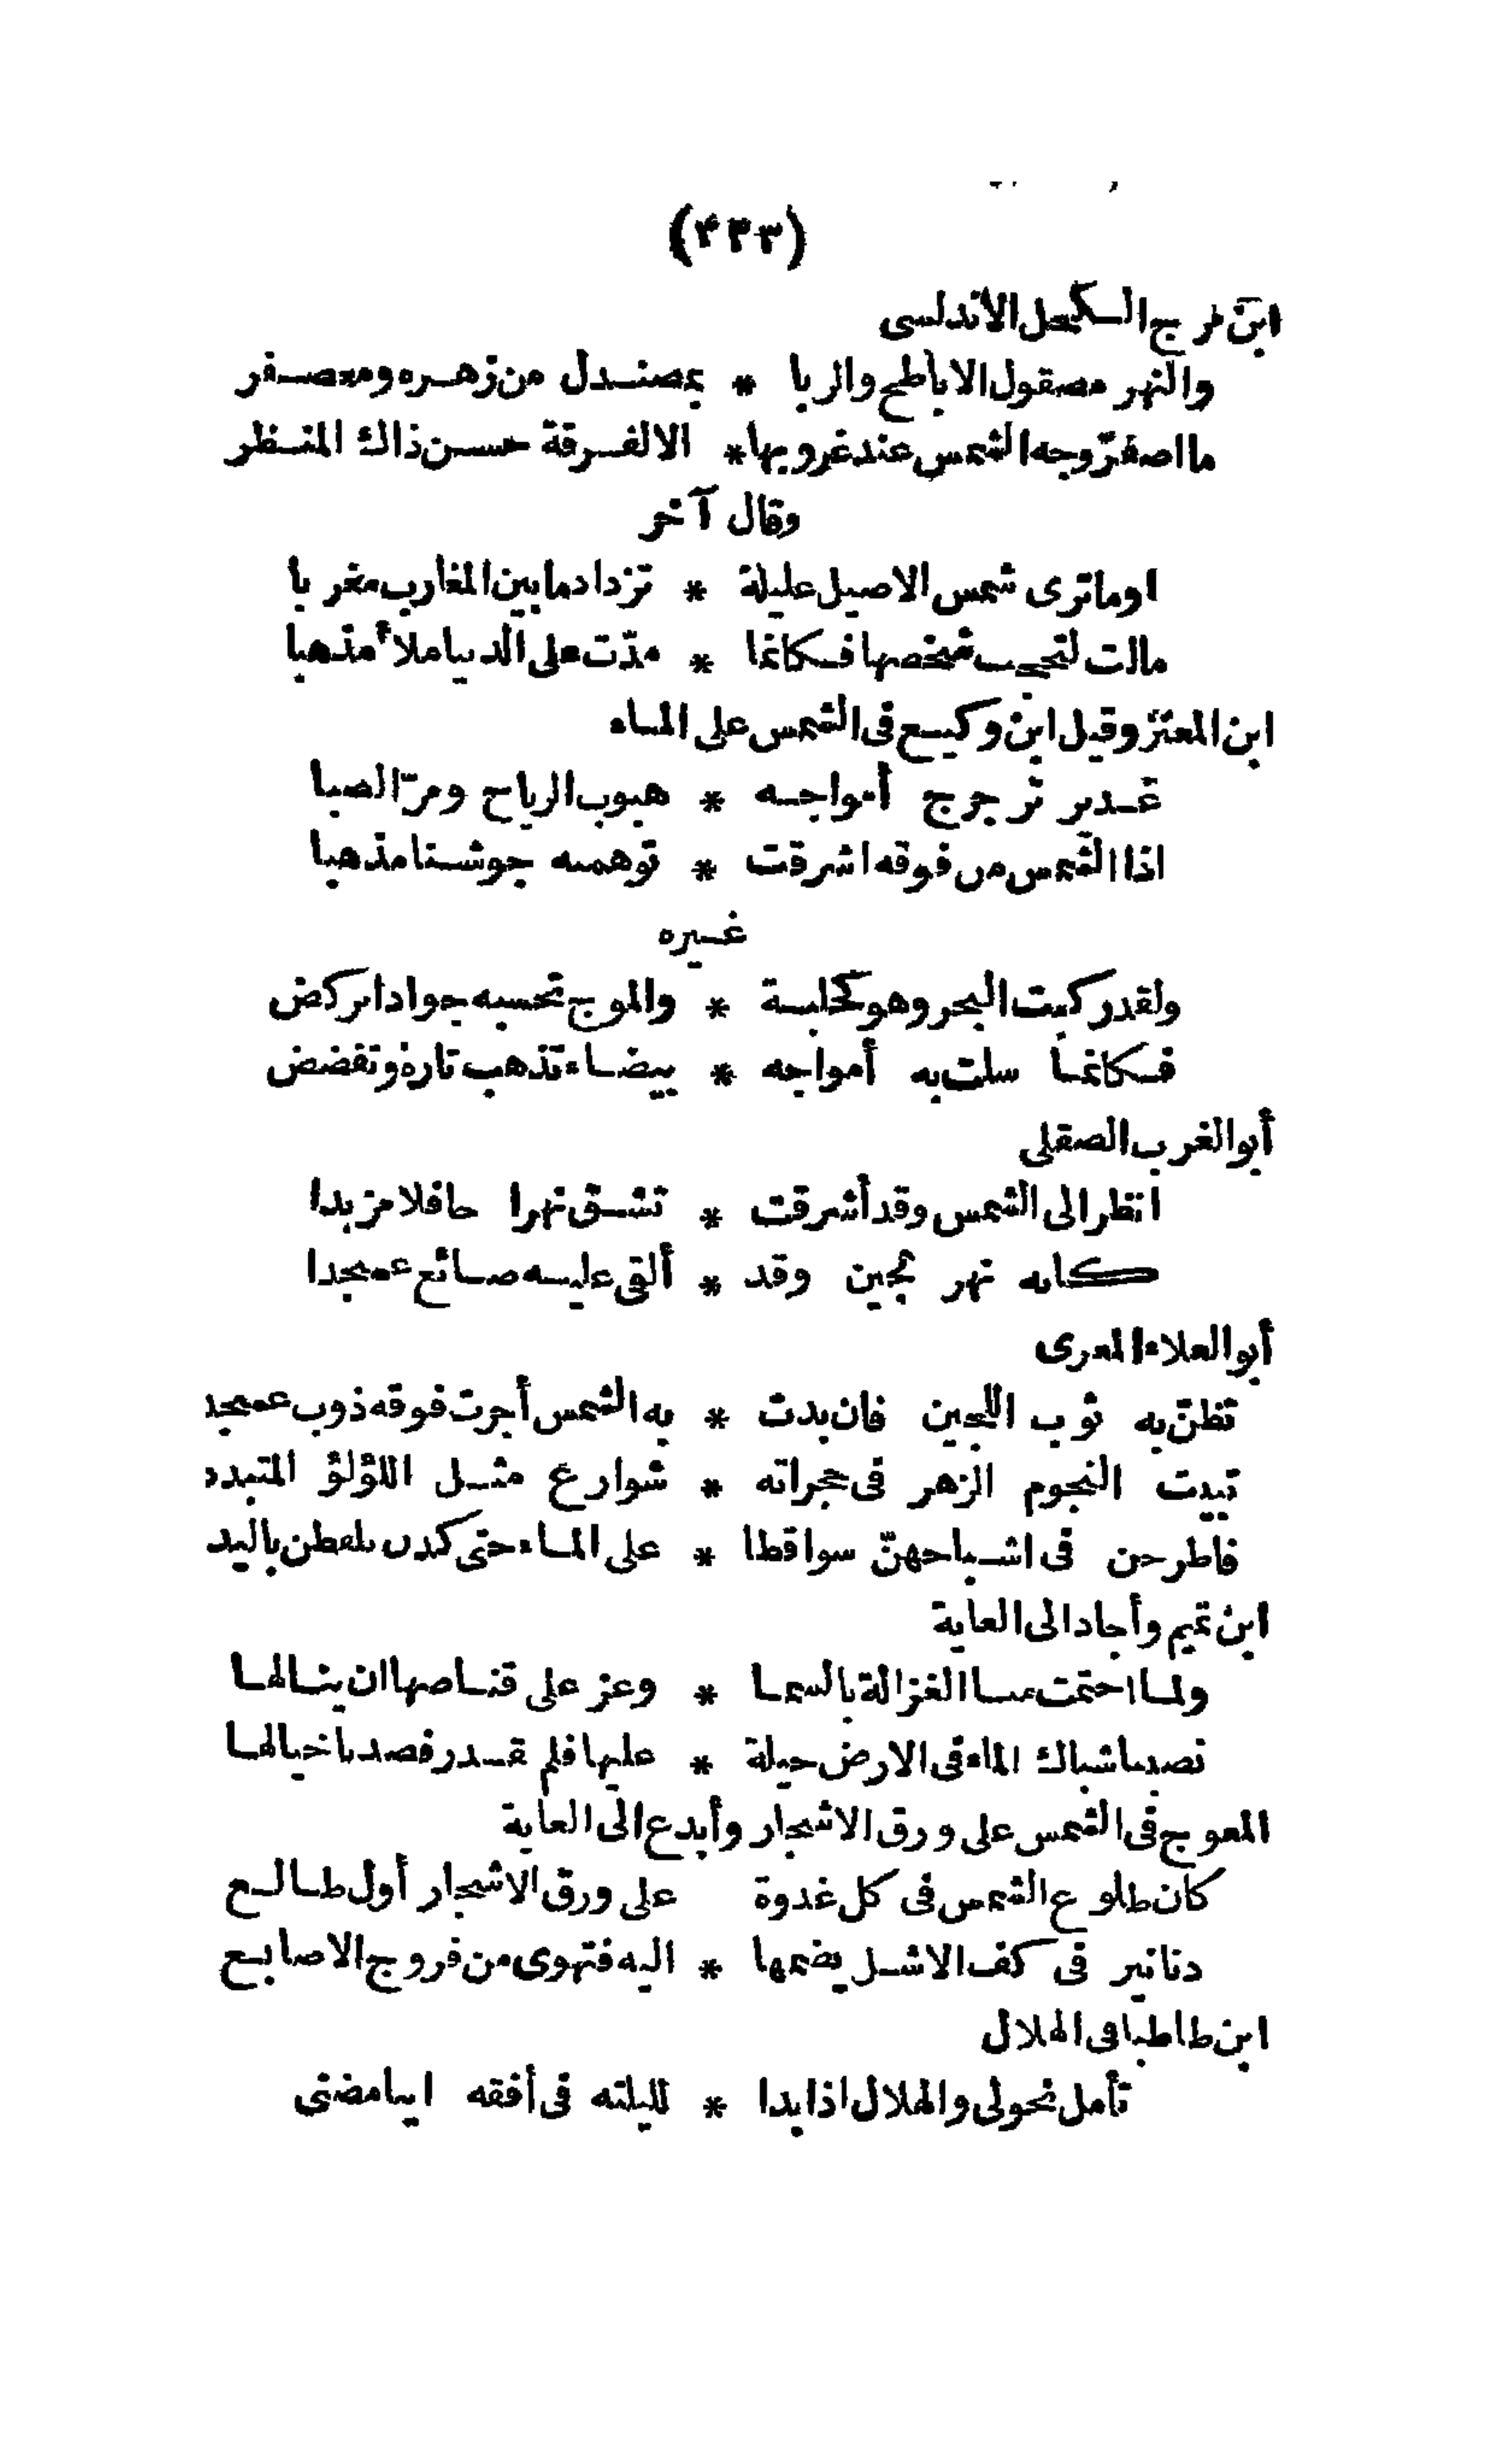 (٤٣٣)
ابن فرج الكحل الاندلسى
والنهر مصقول الاباطح والربا * بمصندل من زهره ومعصفر
ما اصفرّ وجه الشمس عند غروبها * الا لفرقة حسن ذاك المنظر
وقال آخر
او ما ترى شمس الاصيل عليلة * تزداد ما بين المغارب مغربا
مالت لتحجب شخصها فكانما * مدّت على الدنيا ملاً مذهبا
ابن المعتز وقيل ابن وكيع فى الشمس على الماء
غدير ترجرج أمواجه * هبوب الرياح ومرّ الصبا
اذا الشمس من فوقه اشرقت * توهمته جوشنا مذهبا
غيره
ولقد ركبت البحر وهو كحلبة * والموج تحسبه جوادا يركض
فكانما سلت به أمواجه * بيضاء تذهب تارة وتفضض
أبو الغرب الصقلى
انظر الى الشمس وقد أشرقت * تشق نهرا حافلا مزبدا
كانه نهر لجين وقد * ألقى عليه صائغ عسجدا
أبو العلاء المعرى
تظنّ به ثوب اللجين فان بدت * به الشمس أجرت فوقه ذوب عسجد
تبيت النجوم الزهر فى حجراته * شوارع مثل اللؤلؤ المتبدد
فاطرحن فى اشباحهنّ سواقطا * على الماء حتى كدن يلقطن باليد
ابن تميم وأجاد الى الغاية
ولما احتمت منا الغزالة بالسما * وعز على قناصها ان ينالها
نصبنا شباك الماء فى الارض حيلة * عليها فلم نقدر فصدنا خيالها
المعوج فى الشمس على ورق الاشجار وأبدع الى الغاية
كان طلوع الشمس فى كل غدوة على ورق الاشجار أول طالع
دنانير فى كف الاشل يضمها * اليه فتهوى من فروج الاصابع
ابن طاطبا فى الهلال
تأمل نحولى والهلال اذا بدا * لليلته فى أفقه اينا مضنى